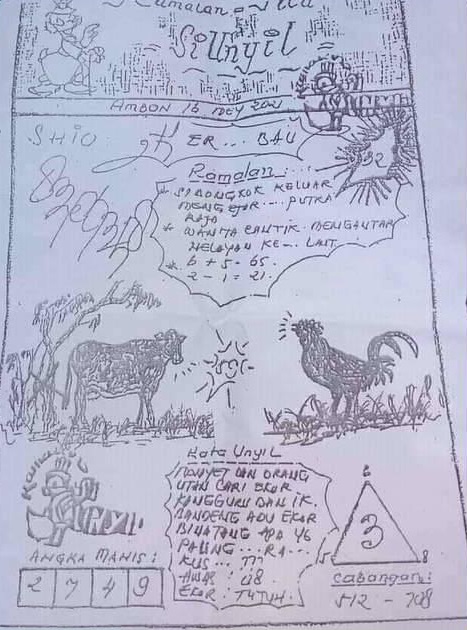 Ramalan = Jitu
SiUnyil
AMBON 16 MEY 2021
UNYIL
SHIO
ER... BAU
Ramalan:
SIBONGKOK KELUAR
MENGEJAR... PUTRA
RAJA
WANITA CANTIK MENGANTAR
NELAYAN KE... LAUT
6 + 5 = 65.
2 - 1 = 21.
Kata UnyiL
MONYET DAN ORANG
UTAN CARI EKOR
KANGGURU DAN IK.
BANDENG ADU EKOR
BINATANG APA YG
PALING... RA...
KUS... ???
AWAS : 48
EKOR : TUJUH.
UNYIL
ANGKA MANIS:
2 7 4 9
6
3
5 8
Cabangan:
512 - 708